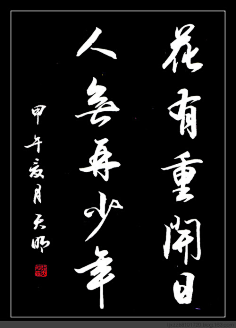 花有重開日
人無再少年
甲午夏月天明